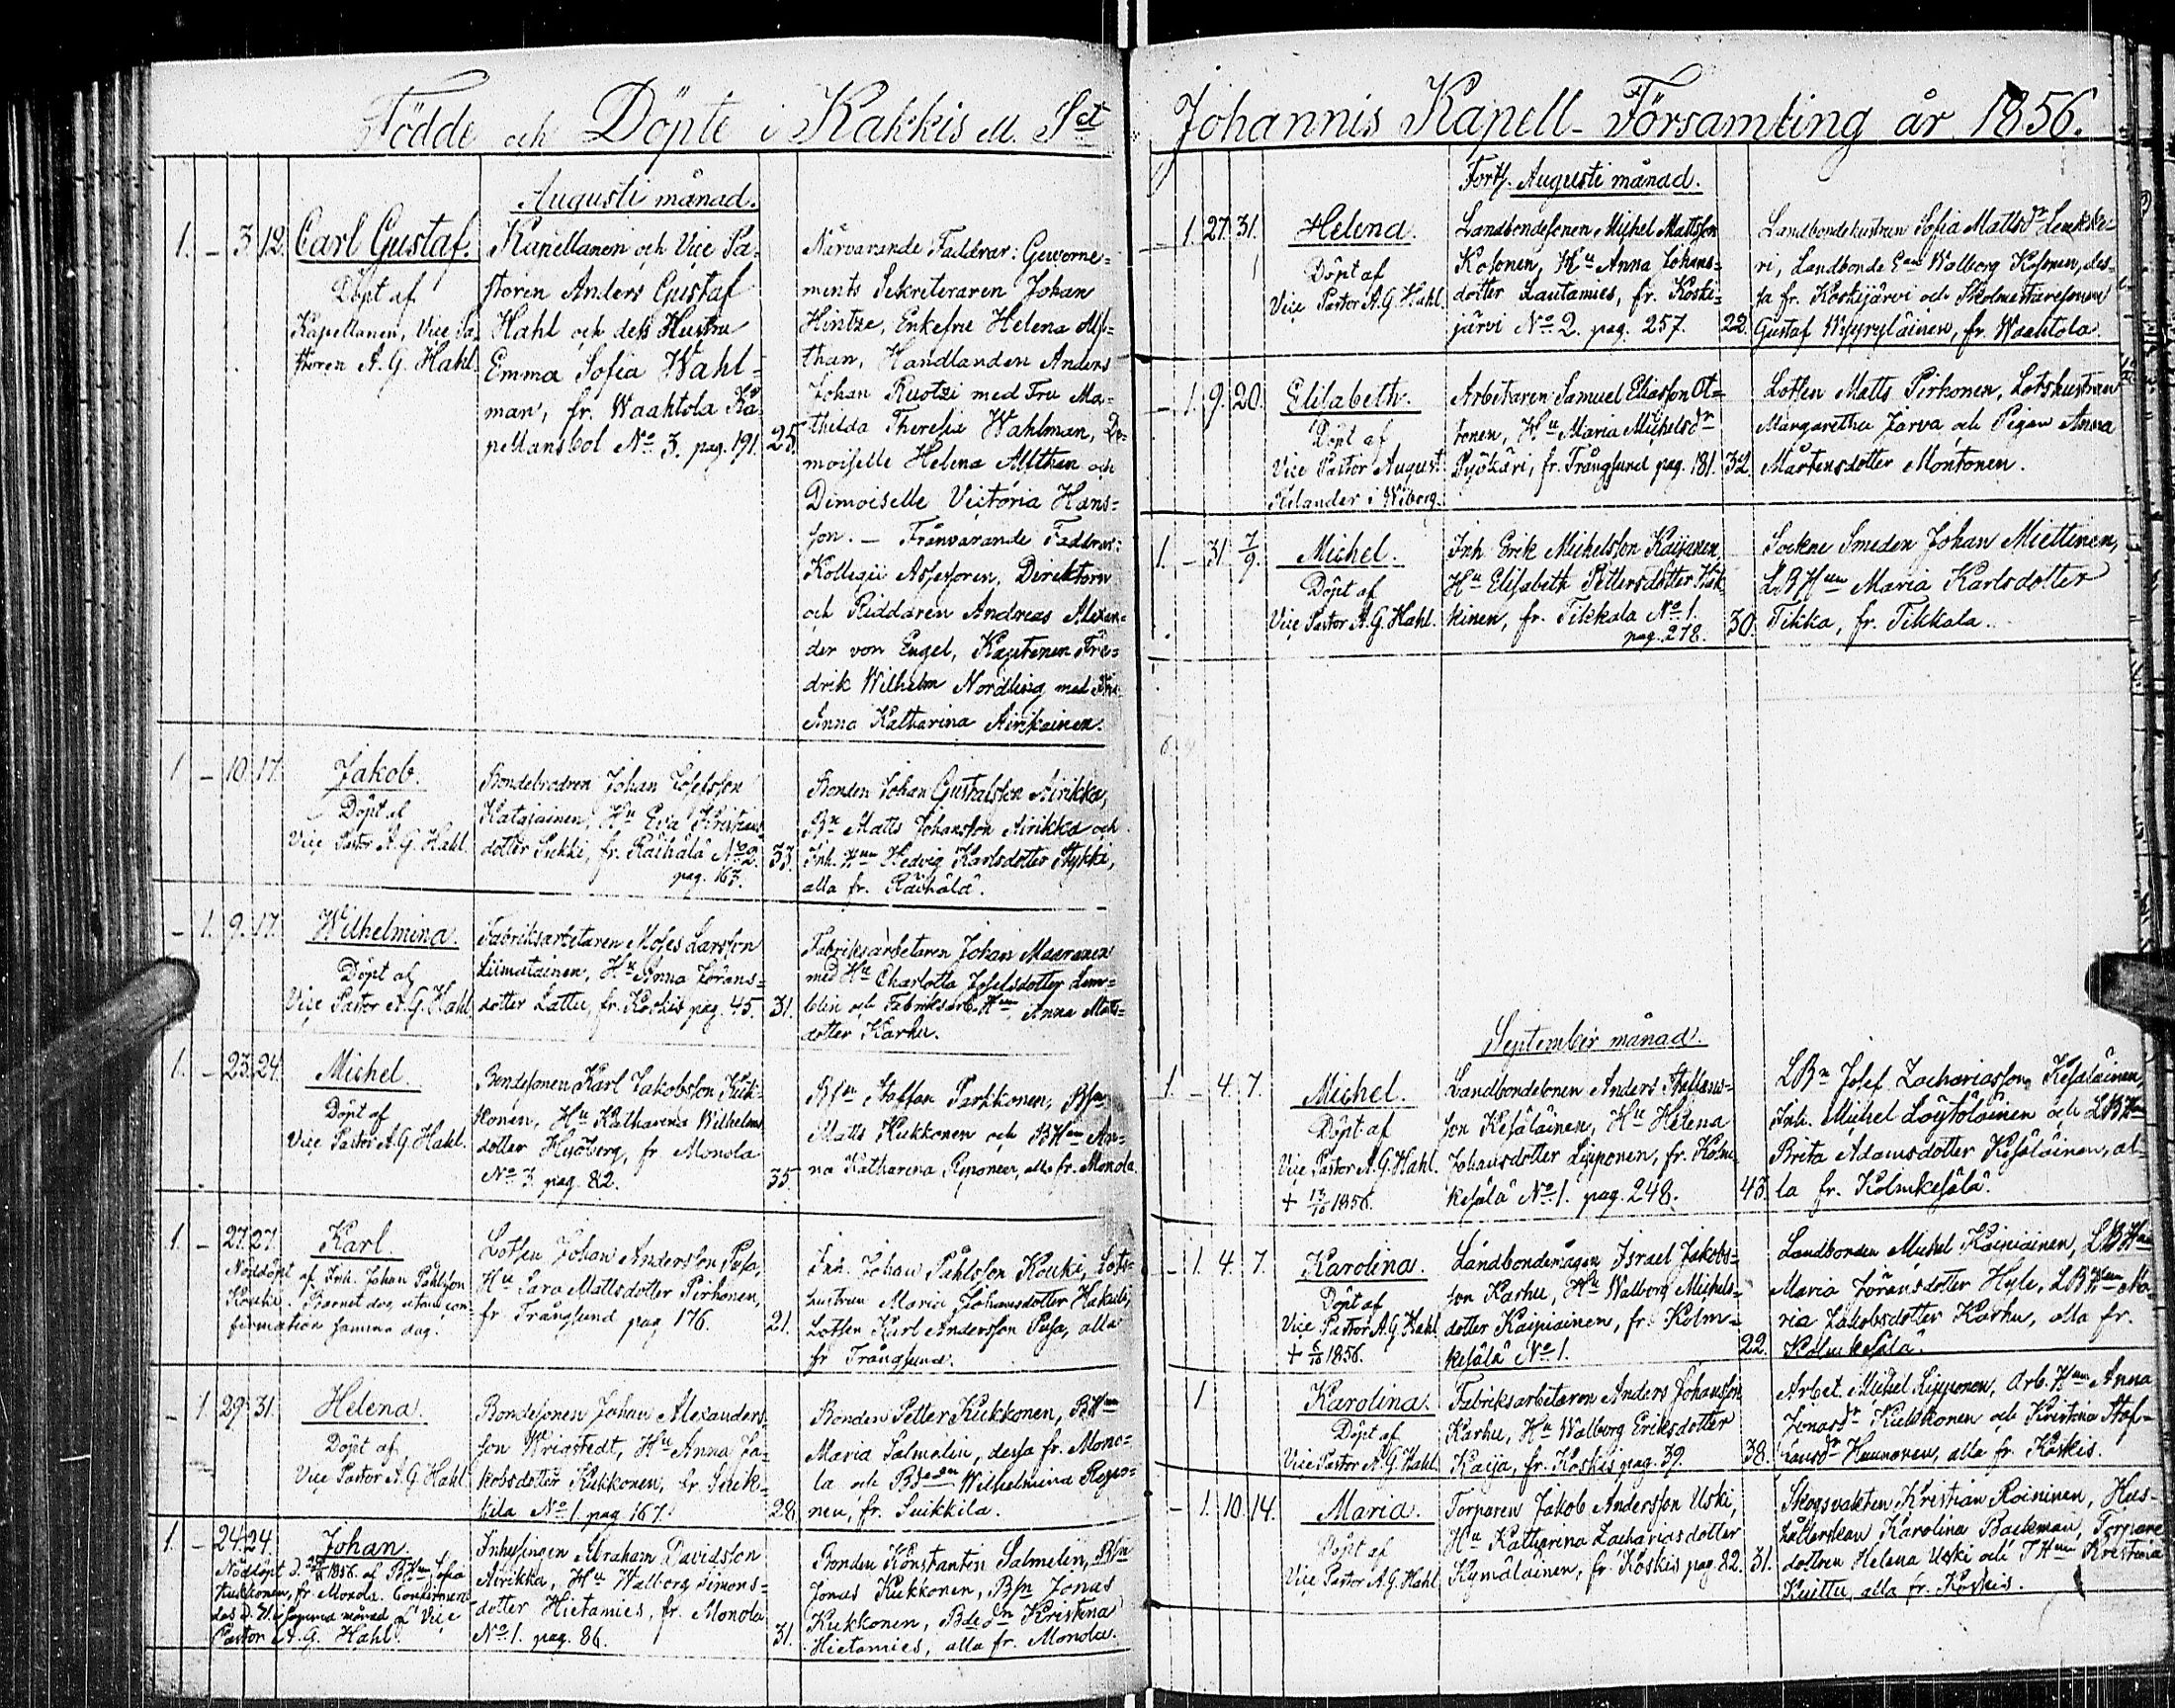 Födde och Döpte i Kakkis el. S:ct
Augusti månad.
1. – 3. 12. Carl Gustaf.
Döpt af
Kapellanen, Vice Pa-
storen A. G. Hahl.
Kapellanen och Vice Pa-
storen Anders Gustaf
Hahl och dess Hustru
Emma Sofia Wahl=
man, fr. Waahtola Ka-
pellansbol No 3. pag. 191. 25.
Närvarande Faddrar: Guverne=
ments Sekreteraren Johan
Hintze, Enkefru Helena Alf=
than, Handlanden Anders
Johan Ruotzi med Fru Ma=
thilda Theresia Wahlman, De=
moiselle Helena Alfthan och
Dimoiselle Victoria Hans=
son. – Frånvarande Faddrar:
Kollegii Assessoren, Direktorn
och Riddaren Andreas Alexan=
der von Engel, Kaptenen Fre=
drik Wilhelm Nordling med Fru
Anna Katharina Airikainen.
1 – 10. 17. Jakob.
Döpt af
Vice Pastor A. G. Hahl.
Bondebrodren Johan Josefsson
Katajainen, Hu Eva Kristians
dotter Sukki, fr. Räihälä No 2. 33.
pag. 163.
Bonden Johan Gustafsson Airikka,
Bn Matts Johansson Airikka och
Inh. Hun Hedvig Karlsdotter Stykki,
alla fr. Räihälä.
– 1. 9. 17. Wilhelmina.
Döpt af
Vice Pastor A. G. Hahl
Fabriksarbetaren Moses Larsson
Liimatainen, Hu Anna Görans=
dotter Lattu, fr. Koskis pag. 45. 31.
Fabriksarbetaren Johan Maaranen
med Hu Charlotta Josefsdotter Lem=
blin och Fabriksarb. Hun Anna Matts=
dotter Karhu.
1. – 23. 24. Michel.
Döpt af
Vice Pastor A. G. Hahl.
Bondesonen Karl Jakobsson Kuk-
konen, Hu Katharina Wilhelms
dotter Hyöberg, fr. Monola
No 3. pag. 82. 35.
Bsn Staffan Parkkonen, Bsn
Matts Kukkonen och BHun An=
na Katharina Reponen, alla fr. Monola.
1. – 27. 27. Karl.
Nöddöpt af Inh. Johan Påhlsson
Kouki. Barnet dog utan con=
firmation samma dag.
Lotsen Johan Andersson Pusa,
Hu Sara Mattsdotter Pirhonen,
fr. Trångsund pag 176. 21.
Inh. Johan Påhlsson Kouki, Lots=
hustrun Maria Johansdotter Hakuli,
Lotsen Karl Andersson Pusa, alla
fr Trångsund.
– 1 29. 31 Helena.
Döpt af
Vice Pastor A. G. Hahl
Bondesonen Johan Alexanders
son Wrigstedt, Hu Anna Ja=
kobsdotter Kukkonen, fr. Suik=
kila No 1. pag 167. 28.
Bonden Petter Kukkonen, BHun
Maria Salmelin, dessa fr. Mono=
la och Wilhelmina Repo=
nen, fr. Suikkila.
1. – 24. 24. Johan.
Nöddöpt d. 1856. af BHun Sofia
Kukkonen, fr. Monola. Confirmera=
des d. 31 samma månad af Vice
Pastor A. G. Hahl.
Inhysingen Abraham Davidsson
Airikka, Hu Walborg Simons=
dotter Hietamies, fr. Monola
No 1. pag. 86. 31.
Bonden Konstantin Salmelin, Bsn
Jonas Kukkonen, Bsn Jonas
Kukkonen, Bdedn Kristina
Hietamies, alla fr. Monola.
Johannis Kapell-Församling år 1856.
Forts. Augusti månad.
– 1. 27. 31. Helena.
Döpt af
Vice Pastor A. G. Hahl.
Landbondesonen Michel Mattsson
Kosonen, Hu Anna Johans=
dotter Lautamies, fr. Koski=
järvi No 2. pag. 257. 22.
Landbondehustrun Sofia Mattsdr
ri, Landbonde Walborg Kosonen, des=
sa fr. Koskijärvi och Skolmästaresonen
Gustaf Wyyryläinen, fr. Waahtola.
– 1. 9. 20. Elisabeth.
Döpt af
Vice Pastor August
i Wiborg.
Arbetaren Samuel Eliasson At=
tonen, Hu Maria Michelsdr
Pyökäri, fr. Trångsund pag. 181. 32.
Lotsen Matts Pirhonen, Lotshustrun
Margaretha Jarva och Pigan Anna
Mårtensdotter Montonen.
1. – 31. 7/9. Michel.
Döpt af
Vice Pastor A. G. Hahl.
Inh. Erik Michelsson Kaipanen,
Hu Elisabeth Pettersdotter
kinen, fr. Tikkala No 1.
pag. 278. 30.
Sockne Smeden Johan Miettinen,
LBHun Maria Karlsdotter
Tikka, fr. Tikkala.
September månad.
1. – 4. 7. Michel.
Döpt af
Vice Pastor A. G. Hahl.
+ 13/10 1856.
Landbondesonen Anders Staffans=
son Kesäläinen, Hu Helena
Johansdotter Lipponen, fr. Kolm=
kesälä No 1. pag. 248. 43.
LBn Josef Zachariasson Kesäläinen,
Inh. Michel Löytöläinen och LBHun
Brita Adamsdotter Kesäläinen, al=
la fr. Kolmkesälä.
– 1. 4. 7. Karolina.
Döpt af
Vice Pastor A. G. Hahl
+ 1856.
Landbondemågen Israel Jakobs=
son Karhu, Hu Walborg Michels=
dotter Kaipiainen, fr. Kolm=
kesälä No 1. 22.
Landbonden Michel Kaipiainen, LBHun
Maria Göransdotter Hyle, LBHun Ma=
ria Jakobsdotter Karhu, alla fr.
Kolmkesälä.
1 Karolina.
Döpt af
Vice Pastor A. G. Hahl
Fabriksarbetaren Anders Johansson
Karhu, Hu Walborg Eriksdotter
Kaija, fr. Koskis pag. 39. 38.
Arbet. Michel Lipponen, Arb. Hun Anna
Jonasdr Kukkonen och Kristina Staf=
fansdr Hannonen, alla fr. Koskis.
– 1. 10. 14. Maria.
Döpt af
Vice Pastor A. G. Hahl
Torparen Jakob Andersson Uski,
Hu Katharina Zachariasdotter
Kymäläinen, fr. Koskis pag 82. 31.
Skogsvakten Kristian Roininen, Hus=
hållerskan Karolina Backman, Torpare
dottren Helena Uski och THun Kristina
Kuittu, alla fr. Koskis.